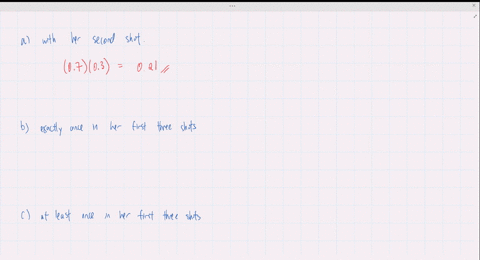 a) with her second shot.
(0.7)(0.3) = 0.21
b) exactly once in her first three shots
c) at least once in her first three shots